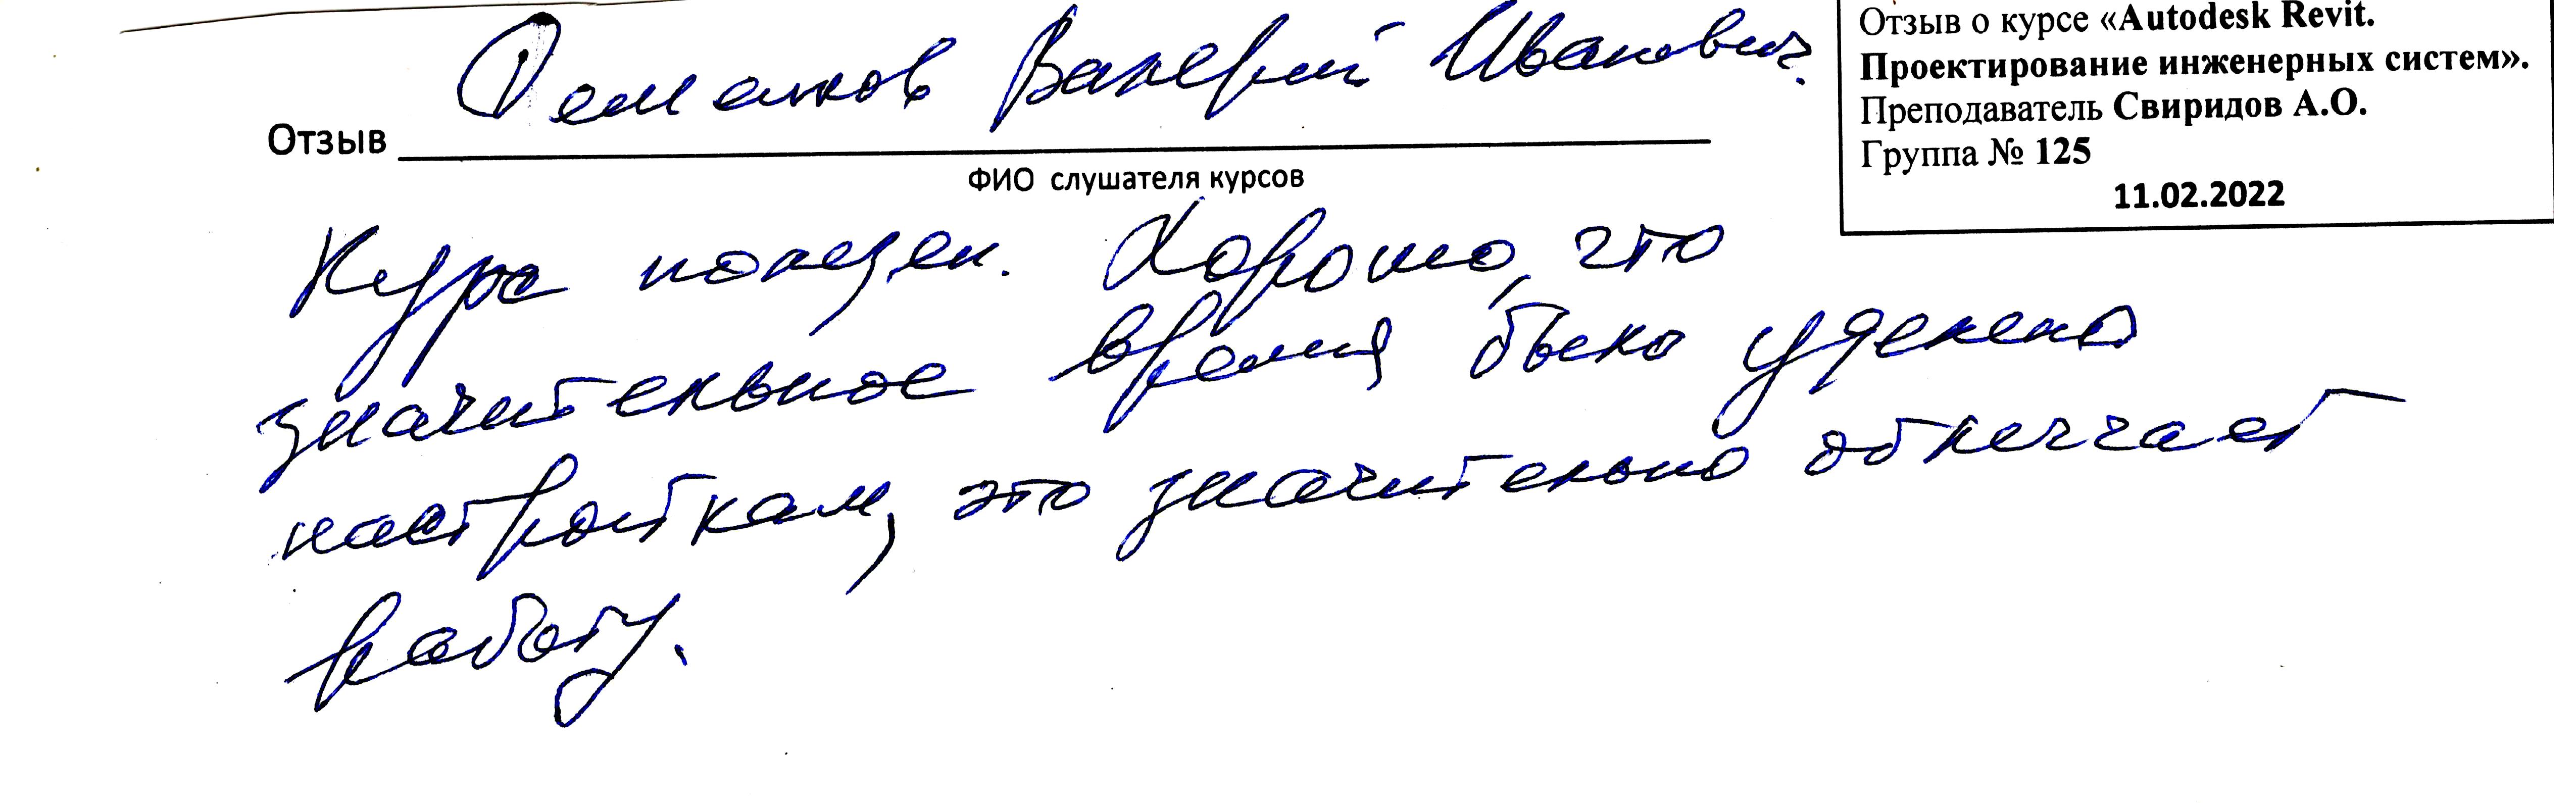 Валерий Иванович
Отзыв
ФИО слушателя курсов
Отзыв о курсе «Autodesk Revit.
Проектирование инженерных систем».
Преподаватель Свиридов А.О.
Группа № 125
11.02.2022
Курс полезен. Хорошо, что
значительное время было уделено
настройкам, это значительно облегчает
работу.